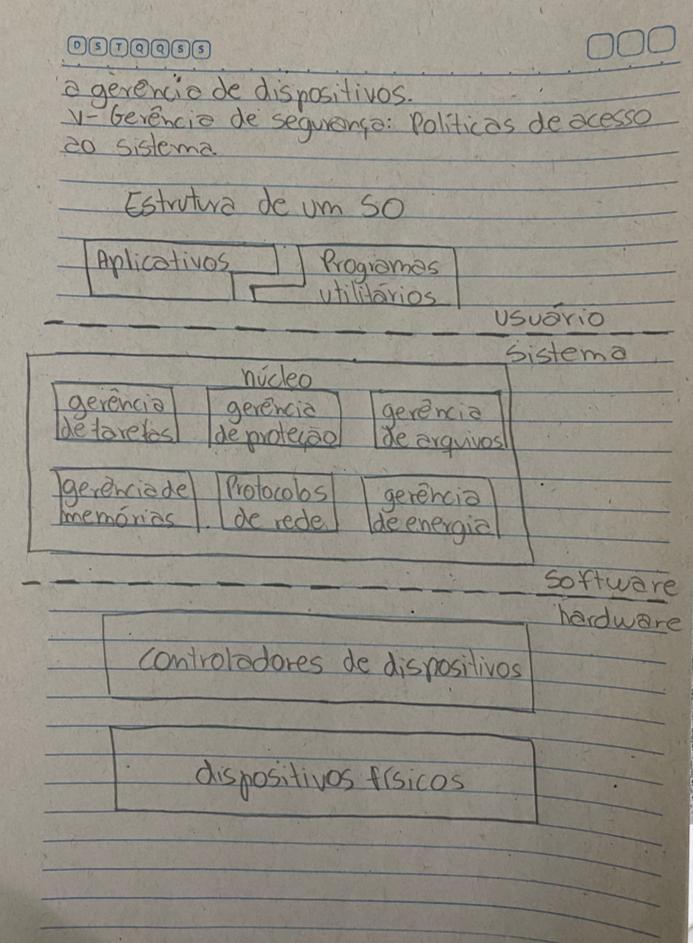 D S T Q Q S S
a gerência de dispositivos.
V- Gerência de segurança: Políticas de acesso
ao sistema.
Estrutura de um SO
Aplicativos
Programas
utilitários
usuário
Sistema
núcleo
gerência
de tarefas
gerência
de proteção
gerência
de arquivos
gerência de
memórias
Protocolos
de rede
gerência
de energia
Software
hardware
controladores de dispositivos
dispositivos físicos